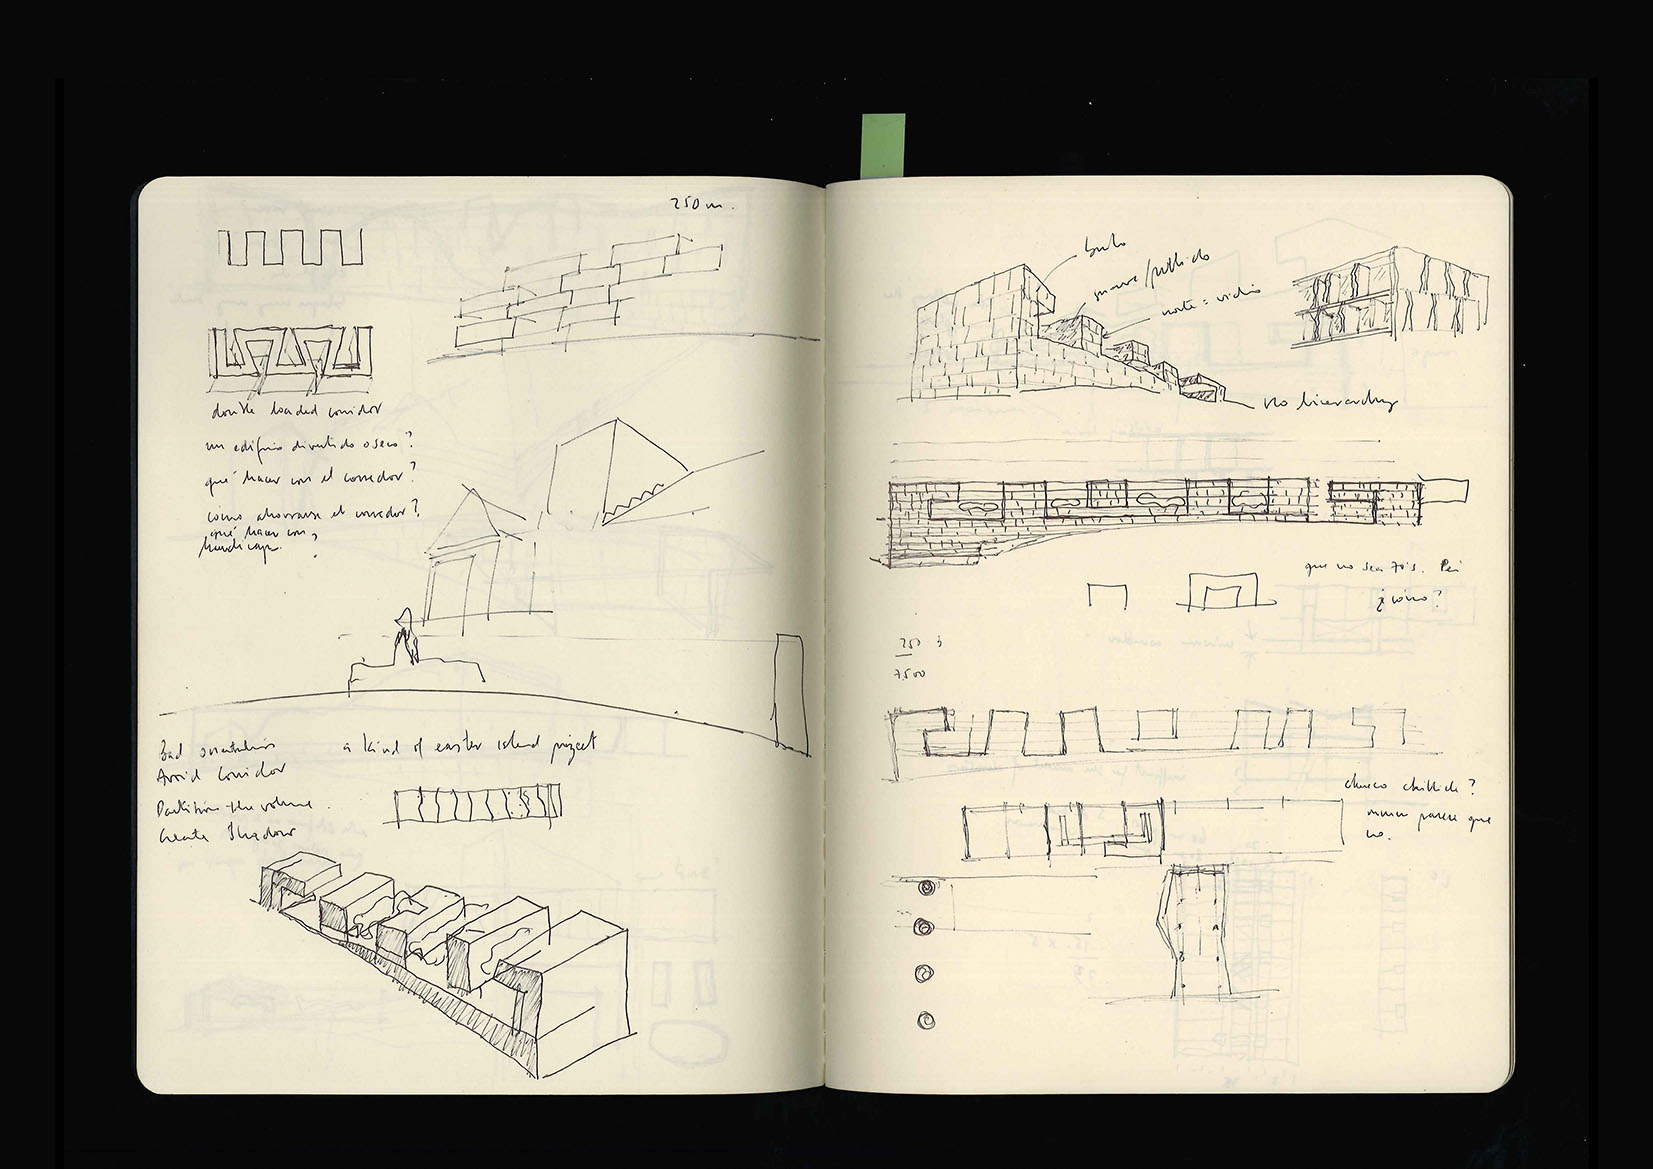 250 m.
double loaded corridor
un edificio divertido o seco?
qué hacer con el corredor?
cómo ahorrarse el corredor?
qué hacer con
handicap. ?
Bad orientation
Avoid Corridor
Partition the volume.
Create Shadow
a kind of easter island project
norte = vidrio
No hierarchy
que no sea 70's. Pei
¿cómo?
250
7.500
chueco chillida?
mmm parece que
no.